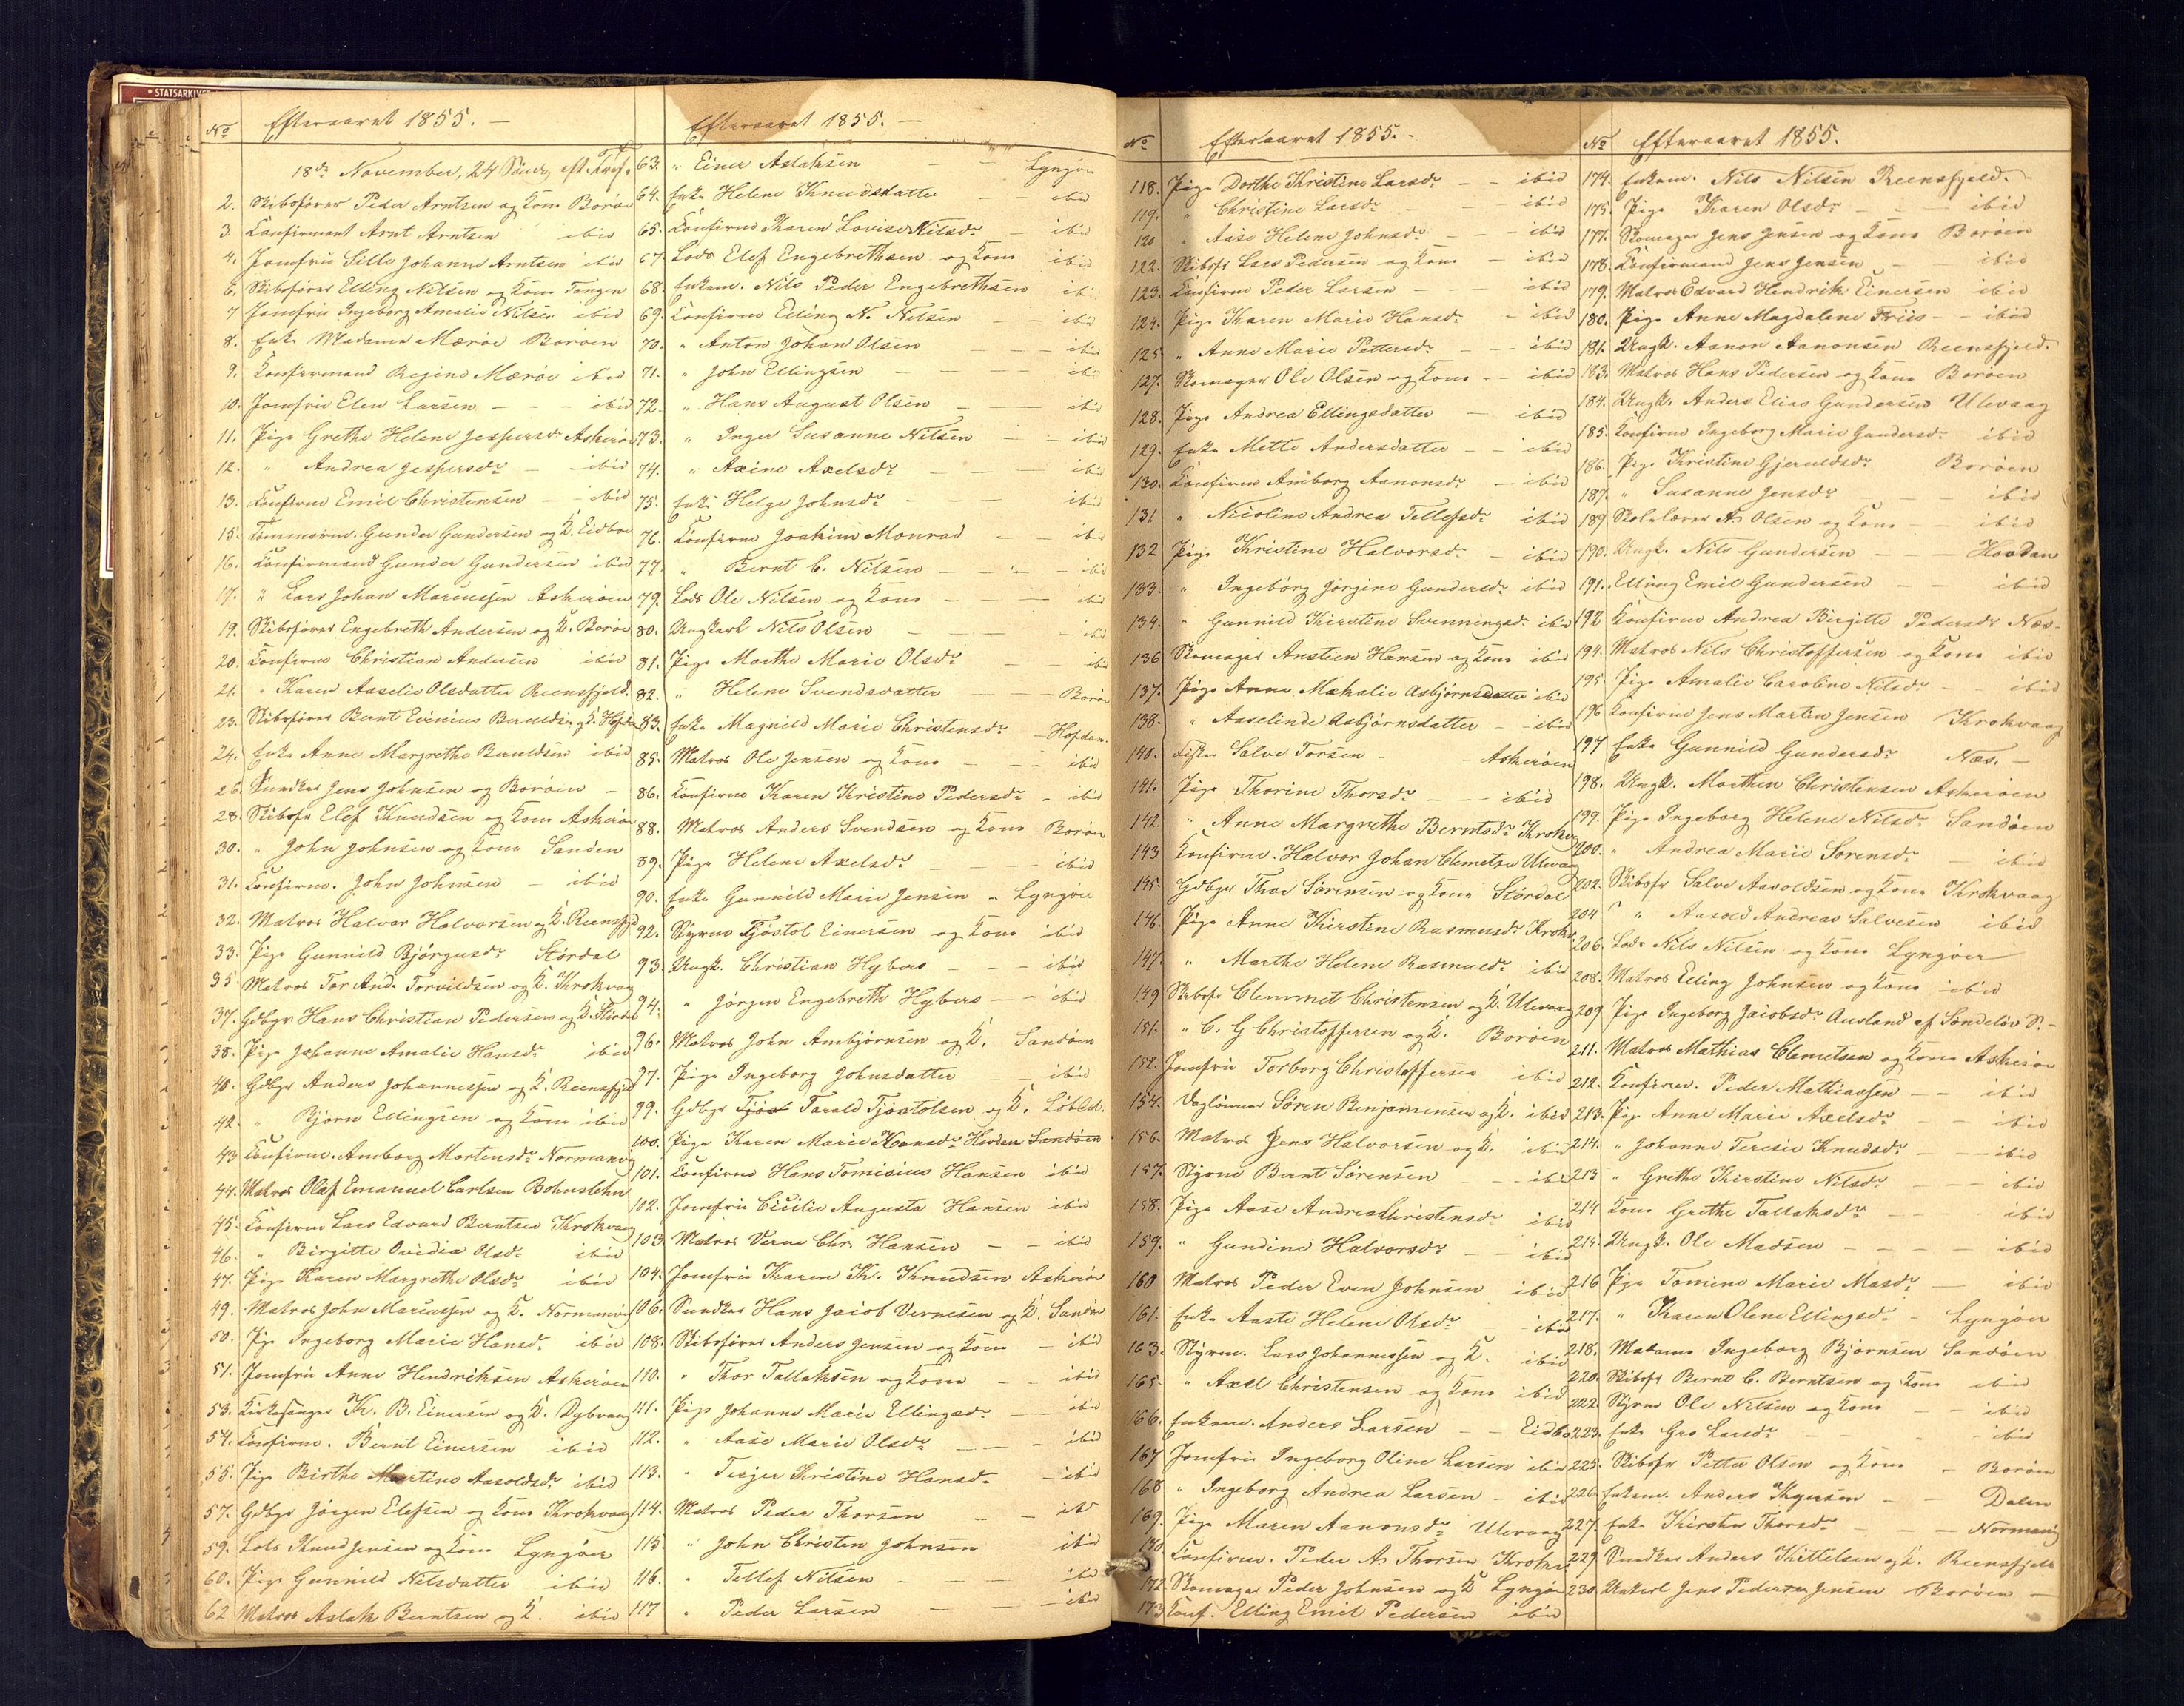 STATSARKIVET
No Efteraaret 1855. —
18de November, 24 Sönd. eft. Tref.
2. Skibsfører Peder Arntsen og Kone Borøe
3 Konfirmant Arnt Arntsen ibid
4. Jomfru Sille Johanne Arntsen ibid
6. Skibsfører Elling Nilsen og Kone Tangen
7 Jomfru Ingeborg Amalie Nilsen ibid
8. Enke Madame Mærøe Borøen
9. Konfirmand Regine Mærøe ibid
10. Jomfru Elen Larsen - - - ibid
11. Pige Grethe Helene Jespersdr Askerøen
12. " Andrea Jespersdr - - ibid
13. Konfirm Emil Christensen - - ibid
15. Tømmerm. Gunder Gundersen og K. Eidboe
16. Konfirmand Gunder Gundersen ibid
17. " Lars Johan Marcussen Askerøen
19. Skibsfører Engebreth Andersen og K. Borøe
20. Konfirm Christian Andersen ibid
21. " Karen Aaselie Olsdatter Reensfjeld.
23. Skibsfører Bernt Eirinius Berntdsen og K. Hofdan
24. Enke Anne Margrethe Berntdsen ibid
26. Sundkar Jens Johnsen og Borøen -
28. Skibsfr Elef Knudsen og Kone Askerøe
30. " John Johnsen og Kone Sanden
31. Konfirm. John Johnsen - ibid
32. Matros Halvor Halvorsen og K. Reensfjd
33. Pige Gunnild Bjørgusdr Størdal
35 Matros Tor And. Torvildsen og K. Krokvaag
37. Gdbgr Hans Christian Pedersen og K. Størdal
38. Pige Johanne Amalie Hansdr ibid
40. Gdbgr Anders Johannessen og K. Reensfjd
42. " Bjørn Ellingsen og Kone ibid
43 Konfirm. Amborg Mortensdr Normanvig
44. Matros Olaf Emanuel Carlsen Bohuslehn
45. Konfirm Lars Edvard Berntsen Krokvaag
46. " Birgitte Ovidia Olsdr ibid
47. Pige Karen Margrethe Olsdr ibid
49. Matros John Marcussen og K. Normanvig
50. Pige Ingeborg Marie Hansdr ibid
51. Jomfru Anne Hendriksen Askerøen
53. Kirkesanger K. B. Einersen og K. Dybvaag
54. Konfirm. Bernt Einersen ibid
55. Pige Birthe Martine Aasoldsdr ibid
57. Gdbgr Jörgen Elefsen og Kone Krokvaag
59. Lods Knud Jensen og Kone Lyngøer
60. Pige Gunnild Nilsdatter ibid
62 Matros Aslak Berntsen og K. ibid
Efteraaret 1855. —
63. " Einer Aslaksen - - Lyngør
64. Enke Helene Knudsdatter - - ibid
65. Konfirm Karen Lovise Nilsdr - ibid
67. Lods Elef Engebrethsen og Kone ibid
68. Enkem. Nils Peder Engebrethsen ibid
69. Konfirm Elling N. Nilsen - - ibid
70. " Anton Johan Olsen - - ibid
71. " John Ellingsen - - ibid
72. " Hans August Olsen - - ibid
73. " Inger Susanne Nilsen - - ibid
74. " Axine Axelsdr - - ibid
75. Enke Helge Johnsdr - - - ibid
76. Konfirm Joakim Monrad - - ibid
77. " Bernt C. Nilsen - - - ibid
79. Lods Ole Nilsen og Kone - - ibid
80. Ungkarl Nils Olsen - - - ibid
81. Pige Marthe Marie Olsdr - ibid
82. " Helene Svendsdatter - - Borøe
83. Enke Magnild Marie Christensdr - Hofdan.
85. Matros Ole Jensen og Kone - - - ibid
86. Konfirm Karen Kristine Pedersdr - ibid
88. Matros Anders Svendsen og Kone Borøen
89. Pige Helene Axelsdr - - - ibid
90. Enke Gunnild Marie Jensen " Lyngøer
92. Styrm Tjöstol Einersen og Kone ibid
93 Ungk. Christian Hybers - - - ibid
94. " Jörgen Engebreth Hybers - - ibid
96. Matros John Ambjørnsen og K. Sandøen
97. Pige Ingeborg Johnsdatter - ibid
99. Gdbgr Tjöst Tarald Tjøstolsen og K. Löbdal.
100. Pige Karen Marie Hansdr Hovdan Sandøen
101. Konfirm Hans Tomisius Hansen ibid
102. Jomfru Cicilie Augusta Hansen ibid
103. Matros Verne Chr. Hansen - - ibid
104. Jomfru Karen K. Knudsen Askerøe
106. Sundkar Hans Jacob Vernesen og K. Sandøe
108. Skibsfører Anders Jensen og Kone - ibid
110. " Thor Tallaksen og Kone - - ibid
111. Pige Johanne Marie Ellingsdr - - ibid
112. " Aase Marie Olsdr - - - ibid
113. " Terjer Kristine Hansdr - ibid
114. Matros Peder Thorsen - - ib
115. " John Christen Johnsen ibid
116. " Tellef Nilsen - - - ibid
117 " Peder Larsen - - - ibid
No Efteraaret 1855. -
118. Pige Dorthe Kristine Larsdr - - ibid
119. " Christine Larsdr - - - ibid
120 " Aase Helene Johnsdr - - - ibid
122. Skibsfr Lars Pedersen og Kone - ibid
123. Konfirm Peder Larsen - - - ibid
124. Pige Karen Marie Hansdr - ibid
125 " Anne Marie Pettersdr - - - ibid
127. Skomager Ole Olsen og Kone - - ibid
128. Pige Andrea Ellingsdatter - ibid
129. Enke Mette Andersdatter - - ibid
130. Konfirm Amborg Aanonsdr - ibid
131 " Nicoline Andrea Tellefsdr ibid
132 Pige Kristine Halvorsdr - ibid
133. " Ingeborg Jörgine Gundersdr ibid
134. " Gunnild Kirstine Svenningsdr ibid
136 Skomager Anstien Hansen og Kone ibid
137. Pige Anne Mathalie Asbjørnsdatter ibid
138. " Aaselinde Asbjørnsdatter - ibid
140. Fisker Salve Torsen - - Askerøen
141. Pige Thorine Thorsdr - - - ibid
142. " Anne Margrethe Berntsdr Krokv
143 Konfirm. Halvor Johan Clemetsen Ulevaag
145. Gdbgr Thor Sörensen og Kone Stördal
146. Pige Anne Kirstine Rasmusdr Krokv
147. " Marthe Helene Rasmusdr ibid
149 Skibsfr Clemmet Christensen og K. Ulevaag
151. " C. G Christoffersen og K. Borøen
152. Jomfru Torborg Christoffersen ibid
154. Daglönner Sören Benjamensen og K. ibid
156. Matros Jens Halvorsen og K. ibid
157. Styrm Bernt Sörensen - - ibid
158. Pige Aase Andrea Christensdr ibid
159. " Gundine Halvorsdr - - ibid
160 Matros Peder Even Johnsen ibid
161. Enke Aaste Helene Olsdr - ibid
163. Styrm. Lars Johannessen og K. ibid
165. " Axel Christensen og Kone ibid
166. Enkem. Anders Larsen - - Eidbo
167 Jomfru Ingeborg Oline Larsen ibid
168 " Ingeborg Andrea Larsen - ibid
169. Pige Maren Aanonsdr Ulevaag
170 Konfirm. Peder A. Thorsen Krokv
172. Skomager Peder Johnsen og K Lyngør
173 Konf. Elling Emil Pedersen ibid
No Efteraaret 1855.
174. Enkem. Nils Nilsen Reensfjeld.
175. Pige Karen Olsdr - - - ibid
177. Skomager Jens Jensen og Kone Borøen
178. Konfirmand Jens Jensen - ibid
179. Matros Edvard Hendrik Einersen ibid
180. Pige Anne Magdalene Friis - - ibid
181. Ungk. Aanon Aanonsen Reensfjeld.
183. Matros Hans Pedersen og Kone Borøen
184. Ungk. Anders Elias Gundersen Ulevaag
185. Konfirm Ingeborg Marie Gundersdr ibid
186. Pige Kristine Gjeruldsdr Borøen
187. " Susanne Jensdr - - - ibid
189 Skolelærer A. Olsen og Kone - - ibid
190. Ungk. Nils Gundersen - - - Hovdan
191. Elling Emil Gundersen - - ibid
192 Konfirm Andrea Birgitte Pedersdr Næs-
194. Matros Nils Christoffersen og Kone ibid
195. Pige Amalie Caroline Nilsdr - - ibid
196 Konfirm Jens Martin Jensen Krokvaag
197 Enke Gunnild Gundersdr Næs. -
198. Ungk. Morthen Christensen Askerøen
199. Pige Ingeborg Helene Nilsdr Sandøen
200. " Andrea Marie Sørensdr - ibid
202. Skibsfr Salve Aasoldsen og Kone Krokvaag
204 " Aasold Andreas Salvesen ibid
206. Lods Nils Nilsen og Kone Lyngøer
208. Matros Elling Johnsen og Kone ibid
209 Pige Ingeborg Jacobsdr Ausland af Søndeløv S. -
211. Matros Mathias Clemetsen og Kone Askerøe
212. Konfirm. Peder Mathiassen - - ibid
213. Pige Anne Marie Axelsdr - - ibid
214. " Johanne Teresie Knudsdr - - ibid
213 " Grethe Kirstine Nilsdr - - - ibid
214 Kone Grethe Tallaksdr - - - ibid
215. Ungk. Ole Madsen - - - - ibid
216 Pige Tomine Marie Masdr - ibid
217. " Karen Olene Ellingsdr - Lyngøer
218. Madame Ingeborg Bjørnsen Sandøen
220. Skibsfr Bernt C. Berntsen og Kone ibid
222. Styrm Ole Nilsen og Kone - - ibid
223. Enke Gro Larsdr - - - ibid
225. Skibsfr Petter Olsen og Kone - Borøen
226. Enkem. Anders - - Dalen
227. Enke Kirsten Thorsdr - - Normanvig
229. Sundkar Anders Kittelsen og K. Reensfjeld
230. Unkarl Jens Pedersen Jensen Borøen -